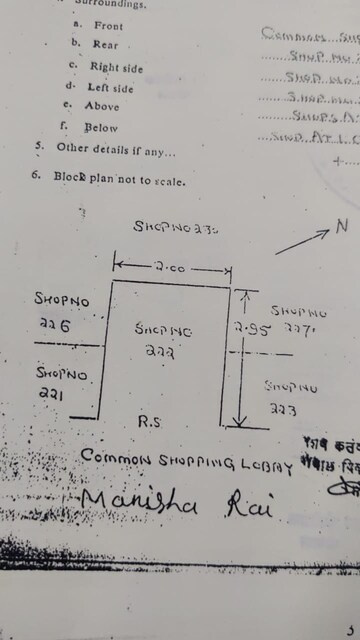 Surroundings.
a. Front Common
b. Rear SHOP NO
c. Right side SHOP NO
d. Left side SHOP NO
e. Above SHOPS AT
f. Below SHOP AT
5. Other details if any...
6. Block plan not to scale.
SHOP NO 230
N
2.00
SHOP NO
226
SHOP NO
222
2.95
SHOP NO
227
SHOP NO
221
SHOP NO
223
R.S
COMMON SHOPPING LOBBY
Manisha Rai